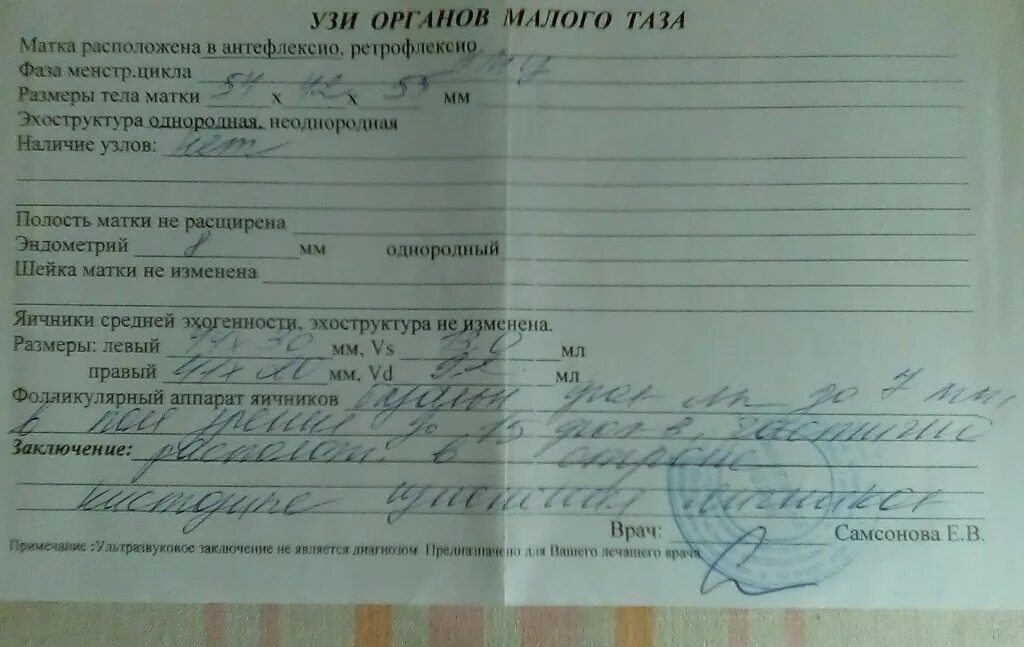 УЗИ ОРГАНОВ МАЛОГО ТАЗА
Матка расположена в антефлексио, ретрофлексио
Фаза менстр.цикла
Размеры тела матки 54 х 42 х 55 мм
Эхоструктура однородная, неоднородная
Наличие узлов: нет
Полость матки не расширена
Эндометрий 8 мм однородный
Шейка матки не изменена
Яичники средней эхогенности, эхоструктура не изменена.
Размеры: левый мм, Vs мл
правый мм, Vd мл
Фолликулярный аппарат яичников до 7 мм,
в поле зрения до 15 частично
Заключение: располож. в строме
яичников
Врач: Самсонова Е.В.
Примечание :Ультразвуковое заключение не является диагнозом Предназначено для Вашего лечащего врача